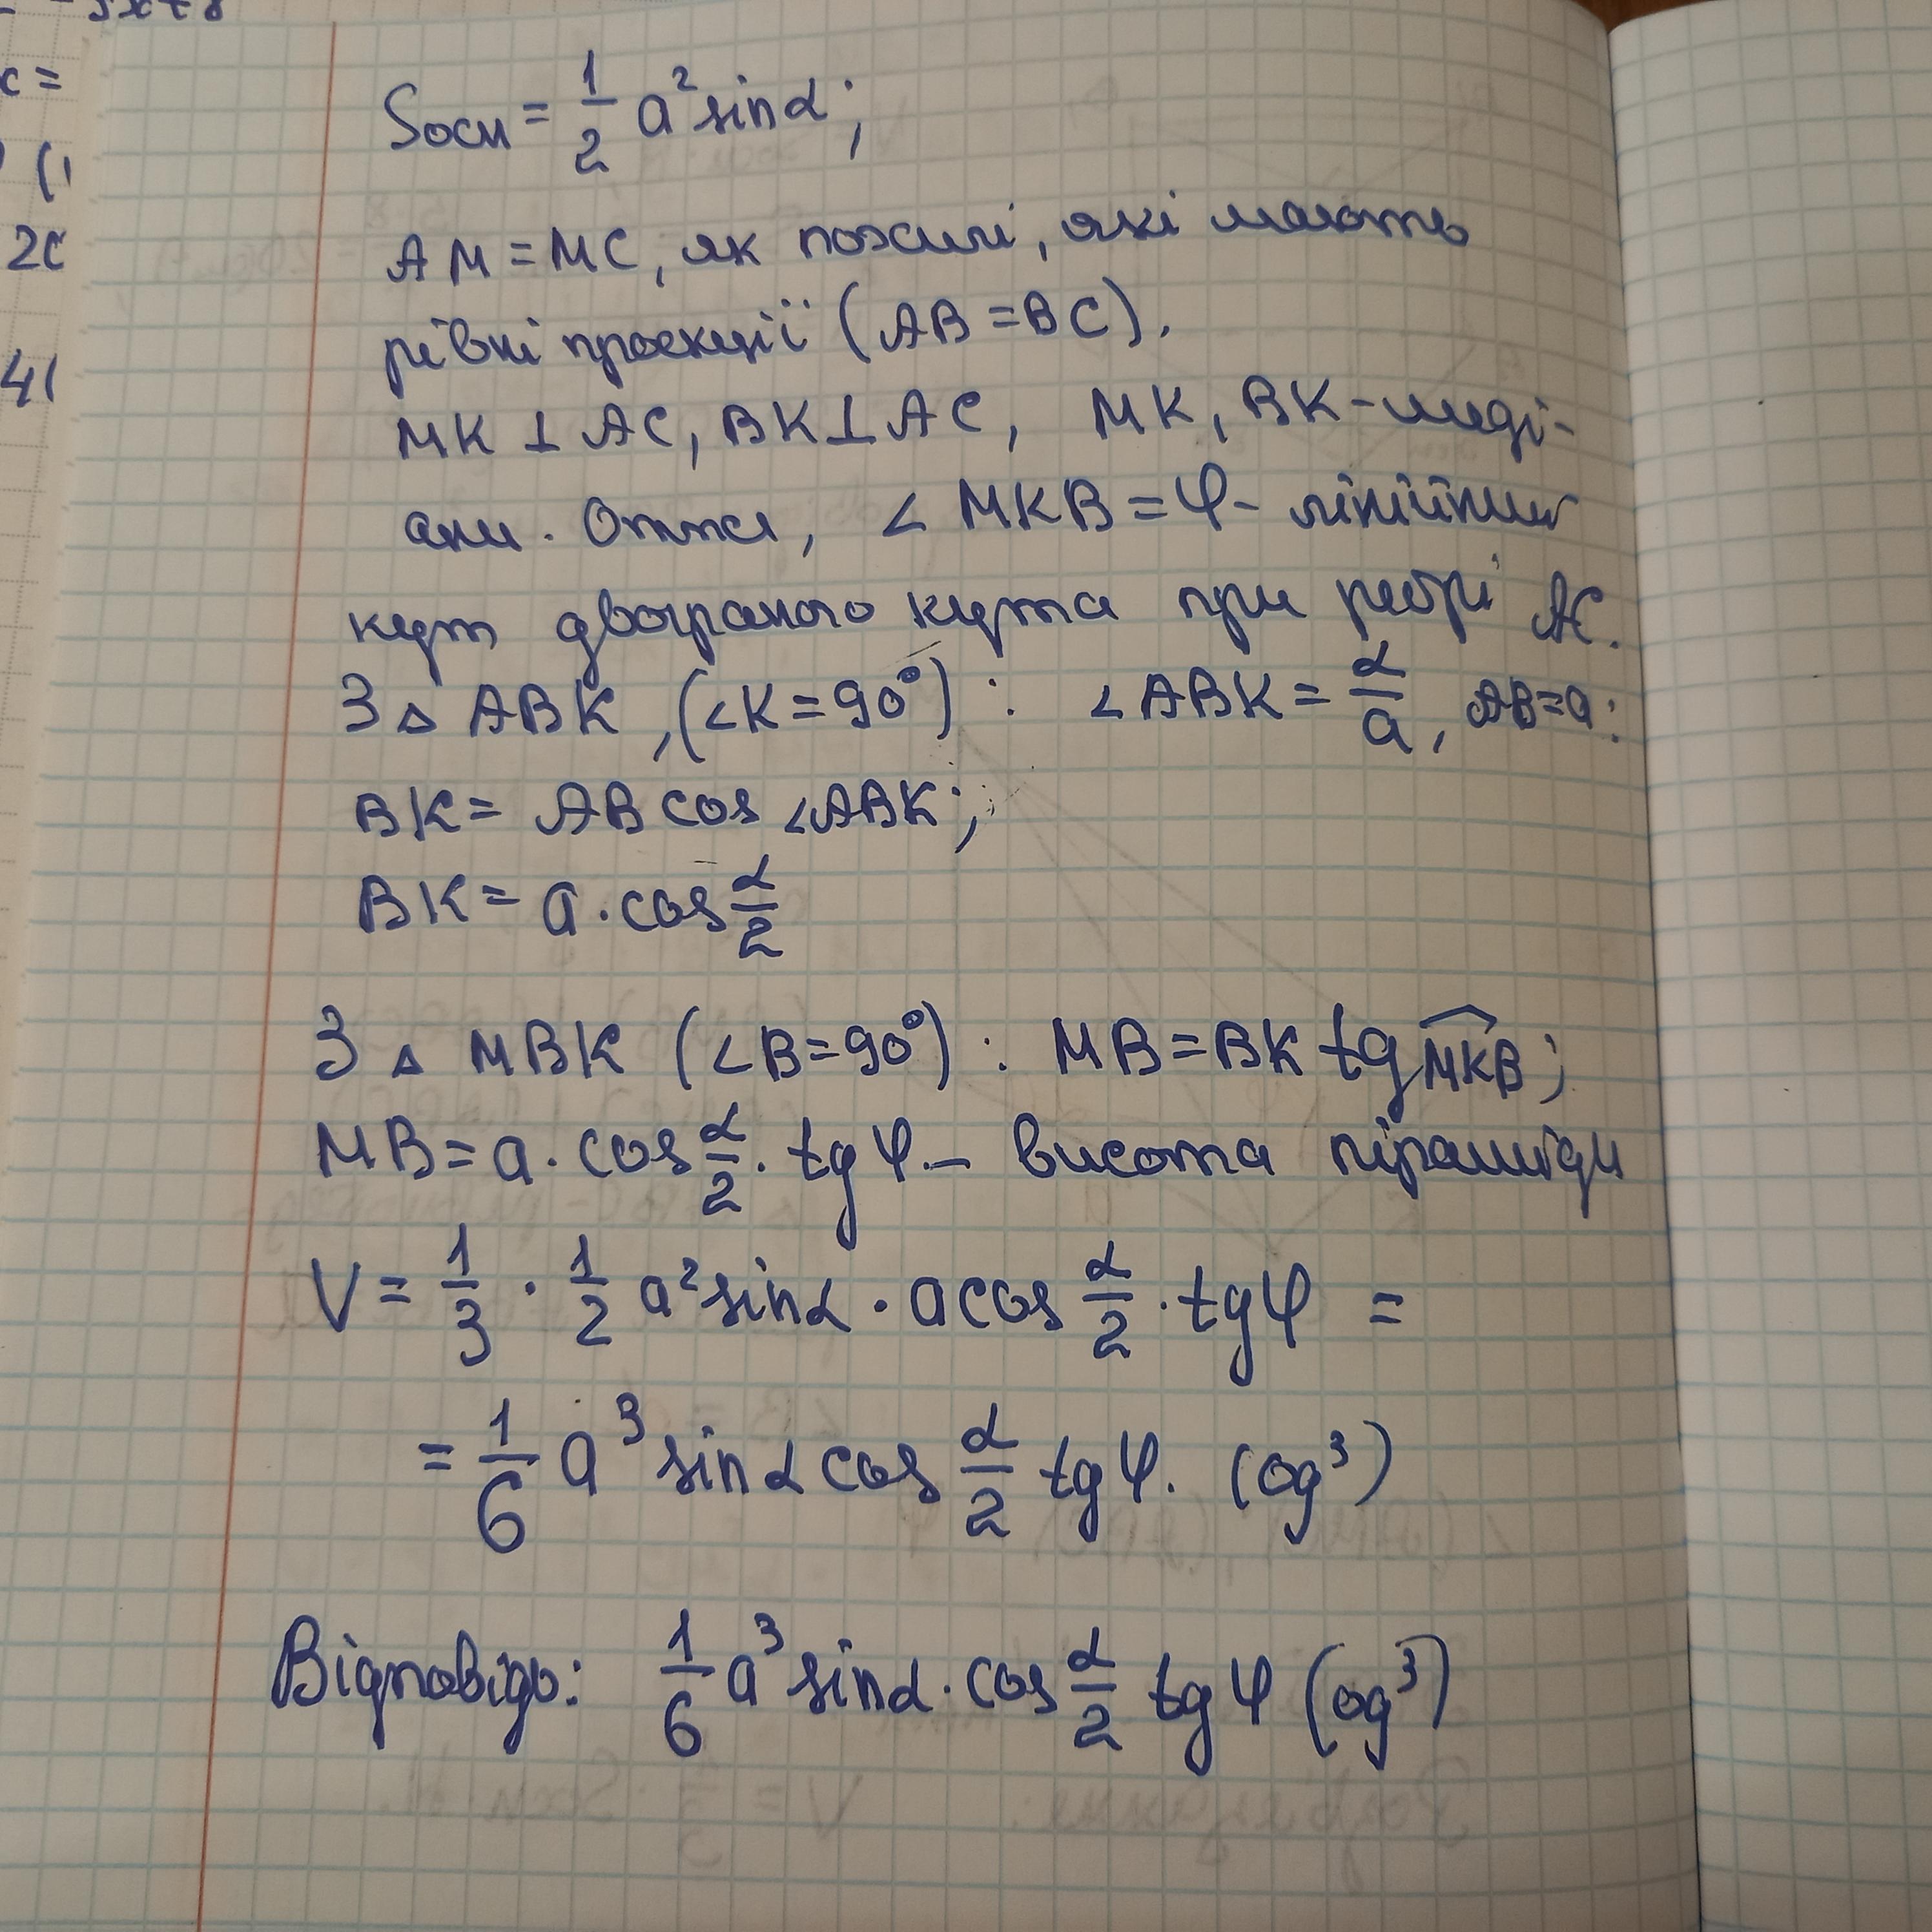 Sосн = 1/2 a² sinα;
AM = MC, як похилі, які мають
рівні проекції (AB = BC).
MK ⊥ AC, BK ⊥ AC, MK, BK - меді-
ани. Отже, ∠ MKB = φ - лінійний
кут двогранного кута при ребрі AC.
З △ ABK, (∠K = 90°) : ∠ABK = α/a, AB = a:
BK = AB cos ∠ABK;
BK = a · cos α/2
З △ MBK (∠B = 90°) : MB = BK tg MKB;
MB = a · cos α/2 · tg φ - висота піраміди
V = 1/3 · 1/2 a² sinα · a cos α/2 · tg φ =
= 1/6 a³ sinα cos α/2 tg φ. (од³)
Відповідь: 1/6 a³ sinα · cos α/2 tg φ (од³)
c =
2C